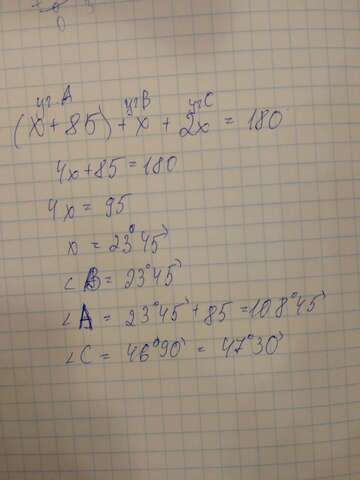 уг.A угB угC
(x+85)+x+2x=180
4x+85=180
4x=95
x=23°45'
∠B=23°45'
∠A=23°45'+85=108°45'
∠C=46°90'=47°30'